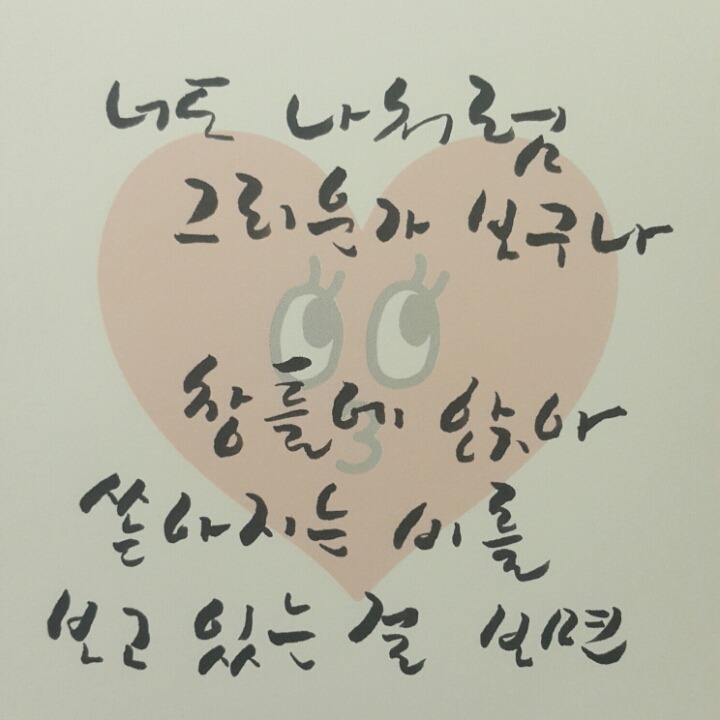 너도 나처럼
그리운가 보구나
창틀에 앉아
쏟아지는 비를
보고 있는 걸 보면